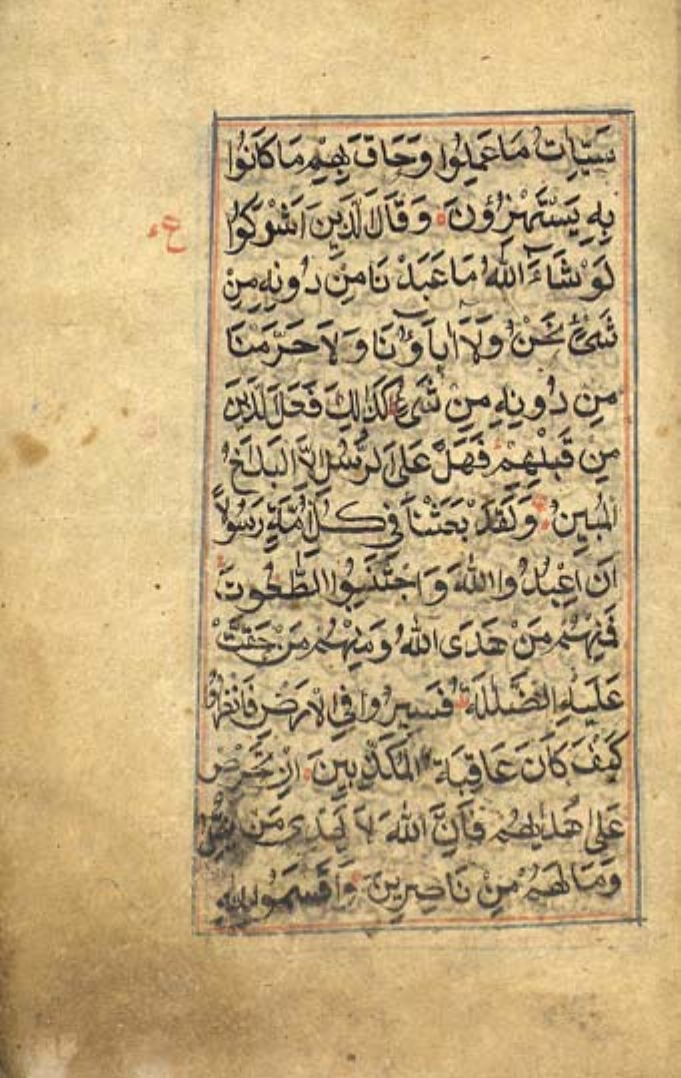 سَيِّاٰتُ مَا عَمِلُوا وَحَاقَ بِهِمْ مَا كَانُوا
بِهِ يَسْتَهْزِؤُنَ وَقَالَ الَّذِينَ اَشْرَكُوا
ع
لَوْ شَاءَ اللّٰهُ مَا عَبَدْنَا مِنْ دُونِهِ مِنْ
شَىْءٍ نَحْنُ وَلَا اٰبَاؤُنَا وَلَا حَرَّمْنَا
مِنْ دُونِهِ مِنْ شَىْءٍ كَذٰلِكَ فَعَلَ الَّذِينَ
مِنْ قَبْلِهِمْ فَهَلْ عَلَى الرُّسُلِ اِلَّا الْبَلٰغُ
الْمُبِينُ وَلَقَدْ بَعَثْنَا فِى كُلِّ اُمَّةٍ رَسُولًا
اَنِ اعْبُدُوا اللّٰهَ وَاجْتَنِبُوا الطّٰغُوتَ
فَمِنْهُمْ مَنْ هَدَى اللّٰهُ وَمِنْهُمْ مَنْ حَقَّتْ
عَلَيْهِ الضَّلٰلَةُ فَسِيرُوا فِى الْاَرْضِ فَانْظُرُوا
كَيْفَ كَانَ عَاقِبَةُ الْمُكَذِّبِينَ اِنْ تَحْرِصْ
عَلٰى هُدٰيهُمْ فَاِنَّ اللّٰهَ لَا يَهْدِى مَنْ يُضِلُّ
وَمَا لَهُمْ مِنْ نَاصِرِينَ وَاَقْسَمُوا بِاللّٰهِ